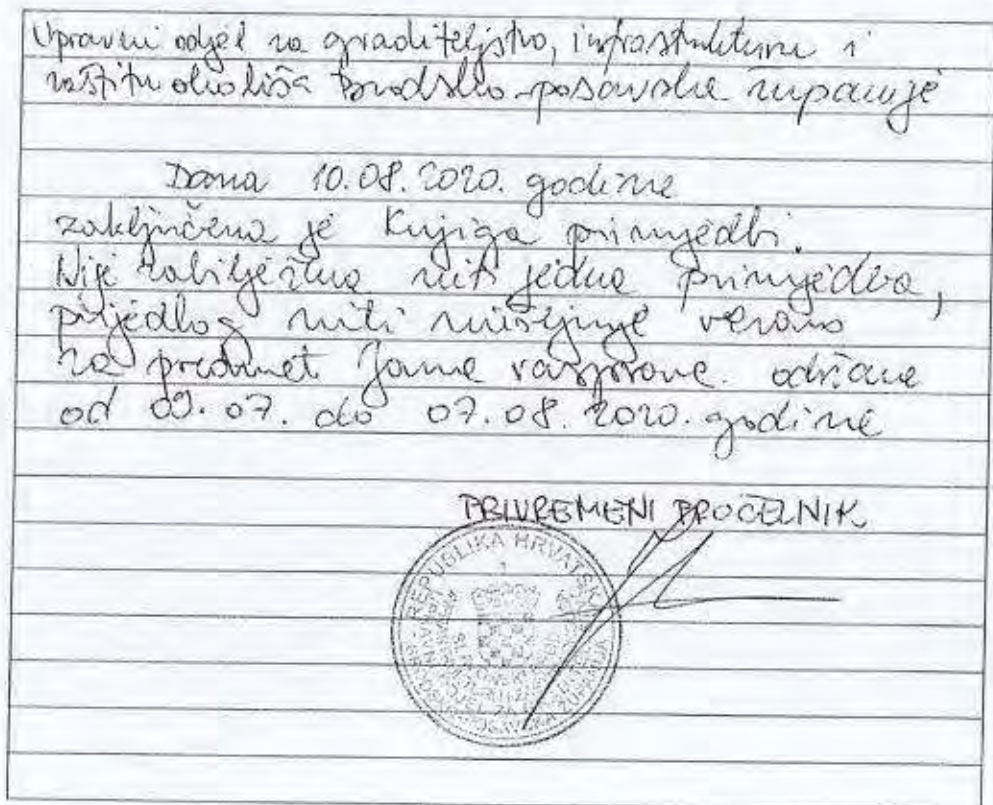 Upravni odjel za graditeljstvo, infrastrukturu i
zaštitu okoliša Brodsko-posavske županije
Dana 10.08.2020. godine
zaključena je Knjiga primjedbi.
Nije zabilježena niti jedna primjedba,
prijedlog niti mišljenje vezano
za predmet Javne rasprave održane
od 09.07. do 07.08.2020. godine
PRIVREMENI PROČELNIK
REPUBLIKA HRVATSKA